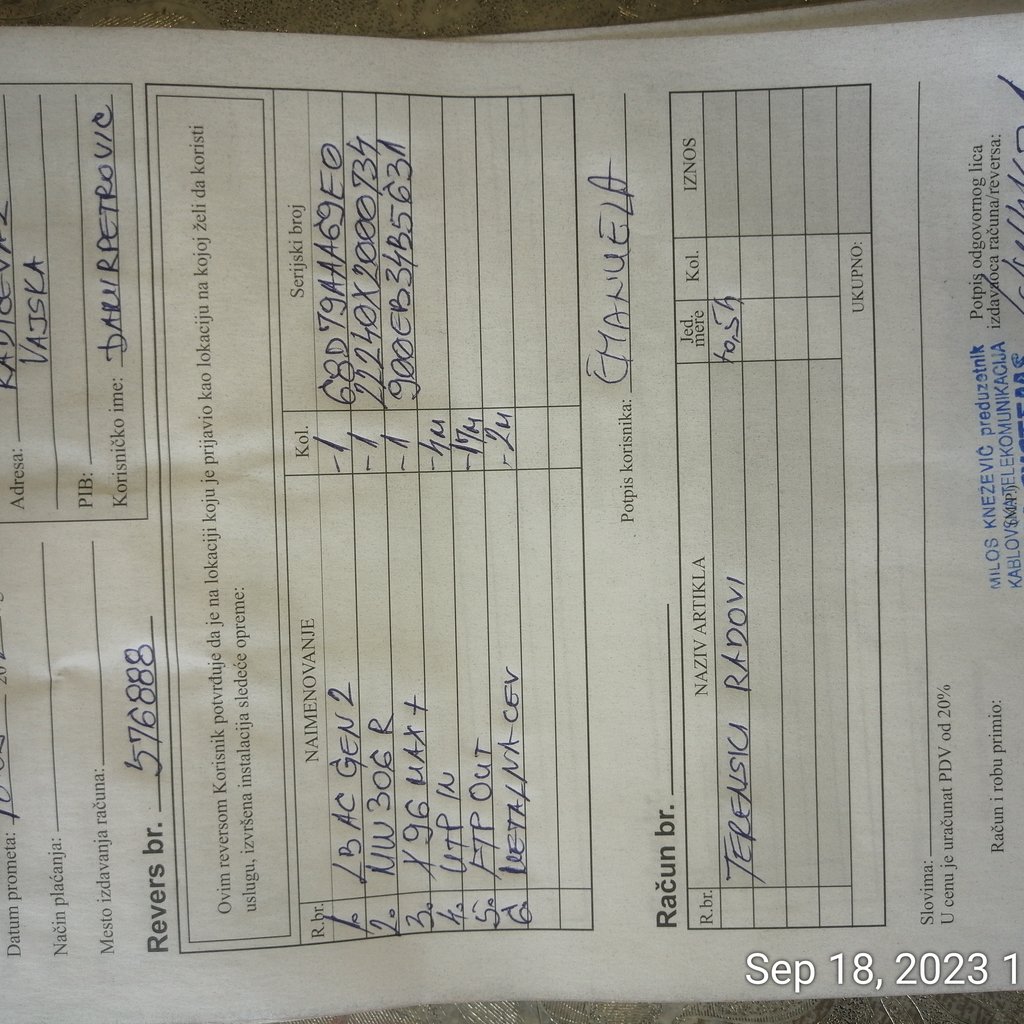 Datum prometa:
Način plaćanja:
Mesto izdavanja računa:
Adresa:
VAJSKA
PIB:
Korisničko ime: DAMIRPETROVIC
Revers br. 576888
Ovim reversom Korisnik potvrđuje da je na lokaciji koju je prijavio kao lokaciju na kojoj želi da koristi
uslugu, izvršena instalacija sledeće opreme:
R.br. NAIMENOVANJE Kol. Serijski broj
1. LB AC GEN2 -1 68D79AAA69E0
2. MW306R -1 22240X2000734
3. X96 MAX+ -1 900EB34B5631
4. UTP IN
5. FTP OUT
6. METALNA CEV -2m
Potpis korisnika: EMANUELA
Račun br.
R.br. NAZIV ARTIKLA Jed. mere Kol. IZNOS
TERENSKI RADOVI
UKUPNO:
Slovima:
U cenu je uračunat PDV od 20%
Račun i robu primio:
MILOS KNEŽEVIĆ preduzetnik
(M.P.)
Potpis odgovornog lica
izdavaoca računa/reversa:
Sep 18, 2023 1